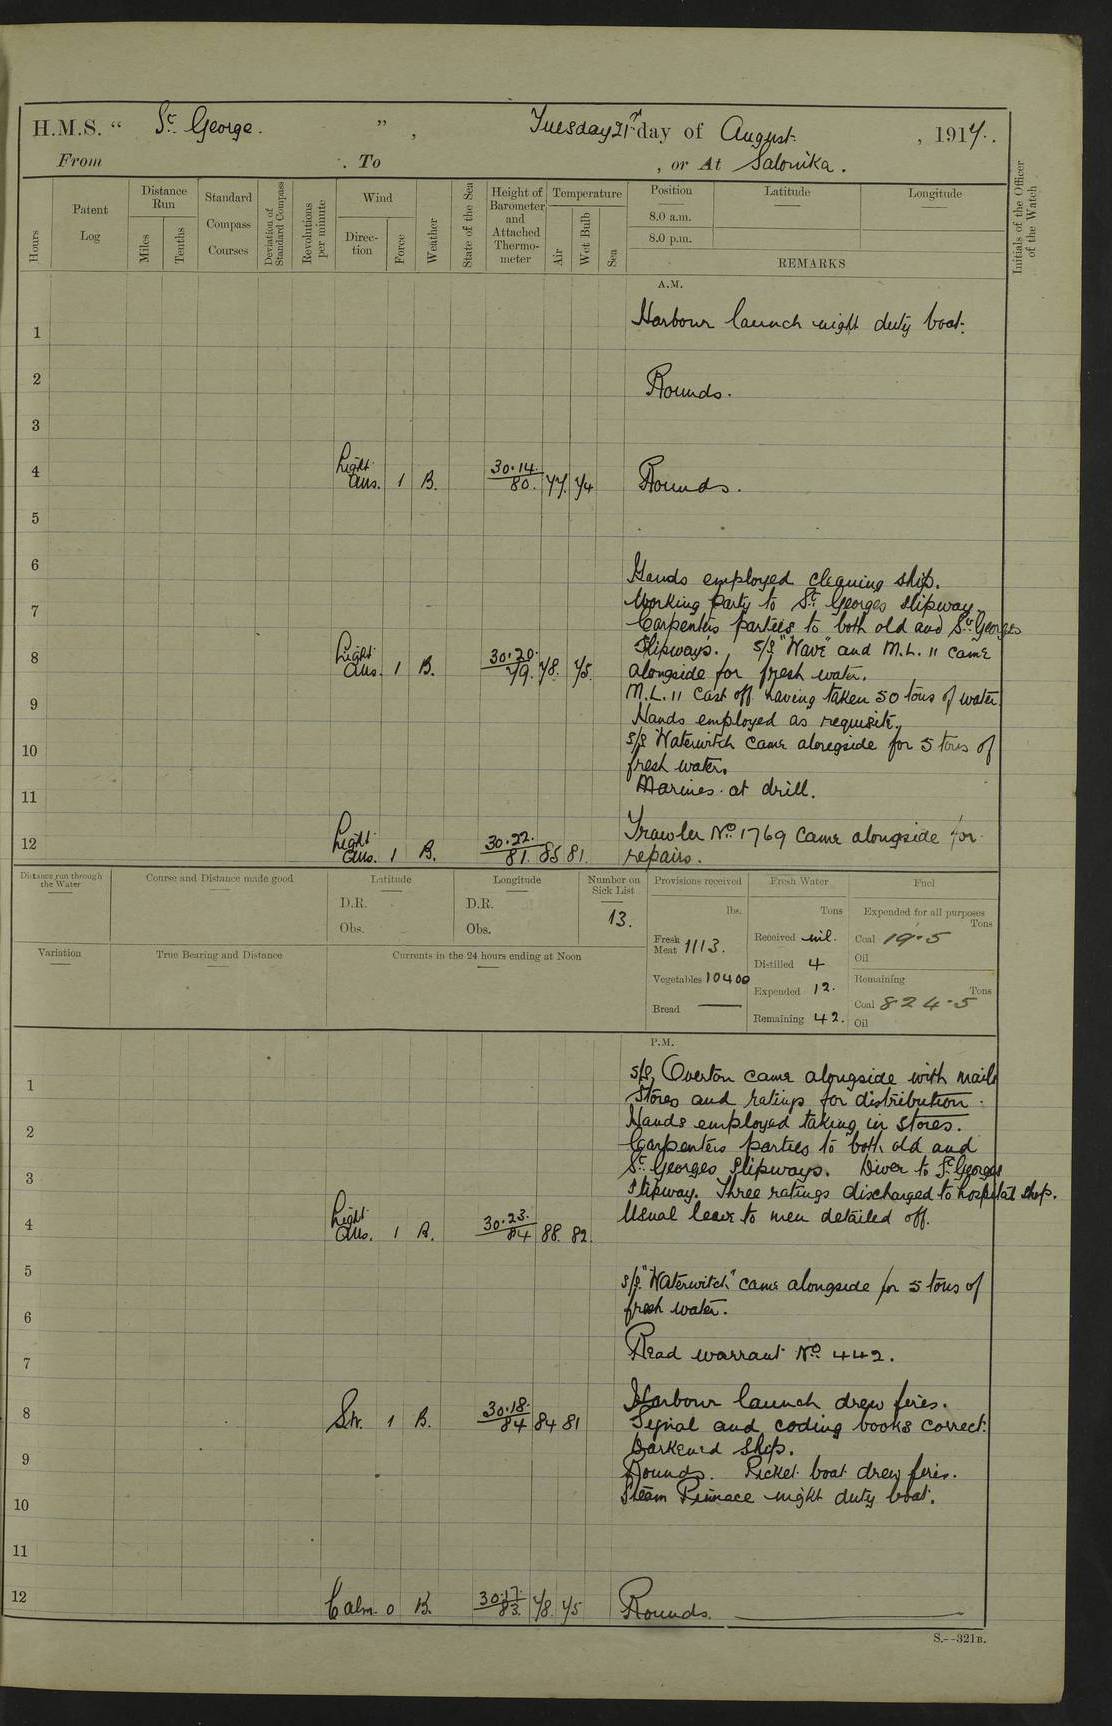 H.M.S. " St. George. " , Tuesday 21st day of August , 1917.
From . To , or At Salonika.
Hours
Patent Log
Distance Run
Miles
Tenths
Standard Compass Courses
Deviation of Standard Compass
Revolutions per minute
Wind
Direction
Force
Weather
State of the Sea
Height of Barometer and Attached Thermometer
Temperature
Air
Wet Bulb
Sea
Position
8.0 a.m.
8.0 p.m.
Latitude
Longitude
REMARKS
Initials of the Officer of the Watch
A.M.
1 Harbour launch night duty boat.
2 Rounds.
3
4 Light Airs. 1 B. 30.14. 80. 77. 74 Rounds.
5
6 Hands employed cleaning ship.
7 Working party to St. Georges slipway.
Carpenters parties to both old and St. Georges
8 Light Airs. 1 B. 30.20. 79. 78. 75. Slipways. S/S "Wave" and M.L. 11 came
alongside for fresh water.
9 M.L. 11 cast off having taken 50 tons of water
Hands employed as requisite.
10 S/S Waterwitch came alongside for 5 tons of
fresh water.
11 Marines at drill.
12 Light Airs. 1 B. 30.22. 81. 85 81. Trawler No. 1769 came alongside for
repairs.
Distance run through the Water
Course and Distance made good
Latitude
D.R.
Obs.
Longitude
D.R.
Obs.
Number on Sick List
13.
Provisions received
lbs.
Fresh Meat 1113.
Vegetables 10400
Bread —
Fresh Water
Tons
Received nil.
Distilled 4
Expended 12.
Remaining 42.
Fuel
Expended for all purposes
Tons
Coal 19.5
Oil
Remaining
Tons
Coal 824.5
Oil
Variation
True Bearing and Distance
Currents in the 24 hours ending at Noon
P.M.
1 S/S Overton came alongside with mails
Stores and ratings for distribution.
2 Hands employed taking in stores.
Carpenters parties to both old and
3 St. Georges Slipways. Diver to St. Georges
Slipway. Three ratings discharged to hospital ship.
4 Light Airs. 1 B. 30.23. 84 88. 82. Usual leave to men detailed off.
5 S/S. "Waterwitch" came alongside for 5 tons of
6 fresh water.
7 Read warrant No. 442.
8 SW. 1 B. 30.18. 84 84 81 Harbour launch drew fires.
Signal and coding books correct.
Darkened ship.
9 Rounds. Picket boat drew fires.
10 Steam Pinnace night duty boat.
11
12 Calm 0 B. 30.17. 83. 78. 75 Rounds.
S.--321B.